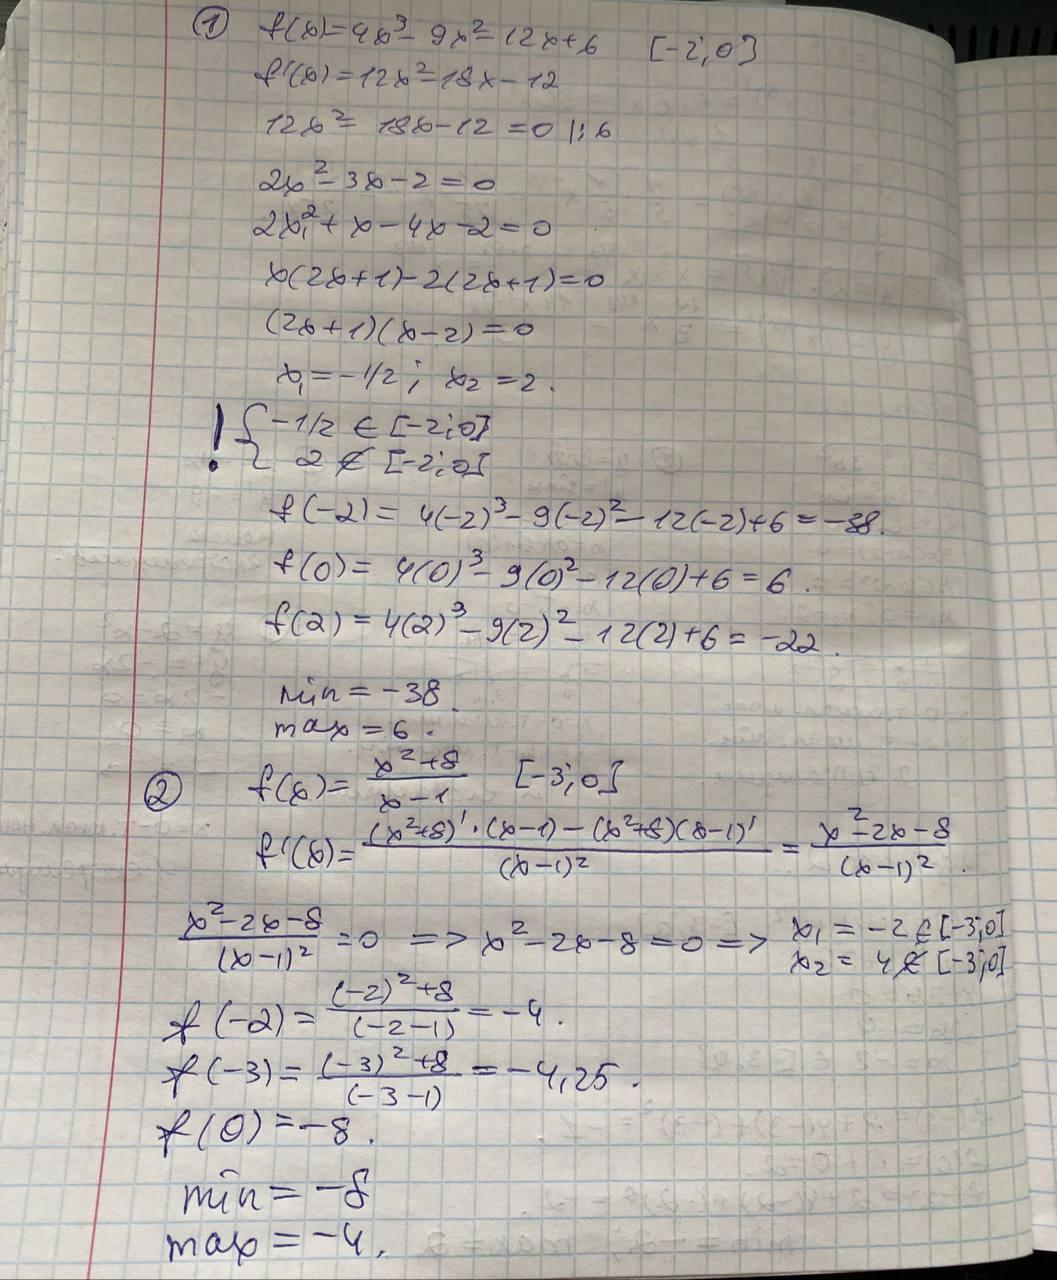 ① f(x)=4x³-9x²-12x+6 [-2;0]
f'(x)=12x²-18x-12
12x²-18x-12=0 |:6
2x²-3x-2=0
2x²+x-4x-2=0
x(2x+1)-2(2x+1)=0
(2x+1)(x-2)=0
x₁=-1/2; x₂=2.
! { -1/2 ∈ [-2;0]
2 ∉ [-2;0]
f(-2)= 4(-2)³-9(-2)²-12(-2)+6=-38.
f(0)= 4(0)³-9(0)²-12(0)+6=6.
f(2)=4(2)³-9(2)²-12(2)+6=-22.
min=-38.
max=6.
② f(x)=(x²+8)/(x-1) [-3;0]
f'(x)=((x²+8)'·(x-1)-(x²+8)(x-1)')/(x-1)² = (x²-2x-8)/(x-1)².
(x²-2x-8)/(x-1)²=0 => x²-2x-8=0 => x₁=-2 ∈ [-3;0]
x₂=4 ∉ [-3;0]
f(-2)=((-2)²+8)/(-2-1)=-4.
f(-3)=((-3)²+8)/(-3-1)=-4,25.
f(0)=-8.
min=-8
max=-4.